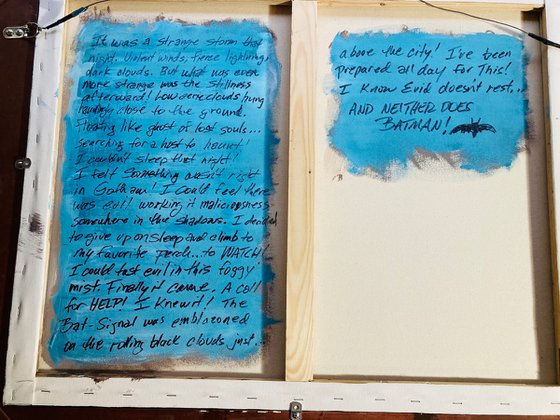 It was a strange storm that
night. Violent winds, fierce lightning,
dark clouds. But what was even
more strange was the stillness
afterward! Low eerie clouds hung
close to the ground.
Floating like ghost of lost souls...
searching for a host to haunt!
I couldn't sleep that night!
I felt something wasn't right
in Gotham! I could feel there
was evil! working it maliciousness
somewhere in the shadows. I decided
to give up on sleep and climb to
my favorite perch... to WATCH!
I could tast evil in this foggy
mist. Finally it came. A call
for HELP! I Knew it! The
Bat-Signal was emblazoned
on the rolling black clouds just...
above the city! I've been
prepared all day for This!
I Know Evid doesn't rest...
AND NEITHER DOES
BATMAN!